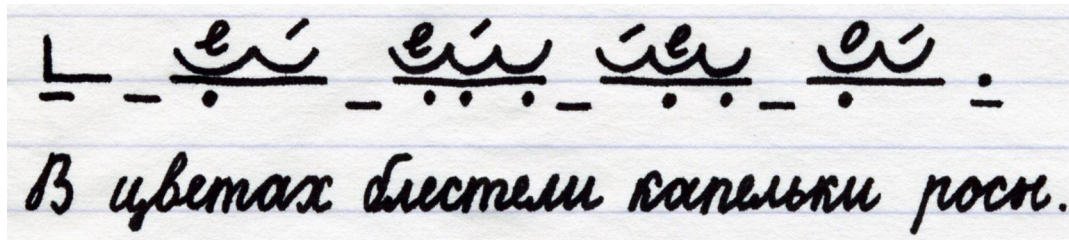 е е е о
В цветах блестели капельки росы.